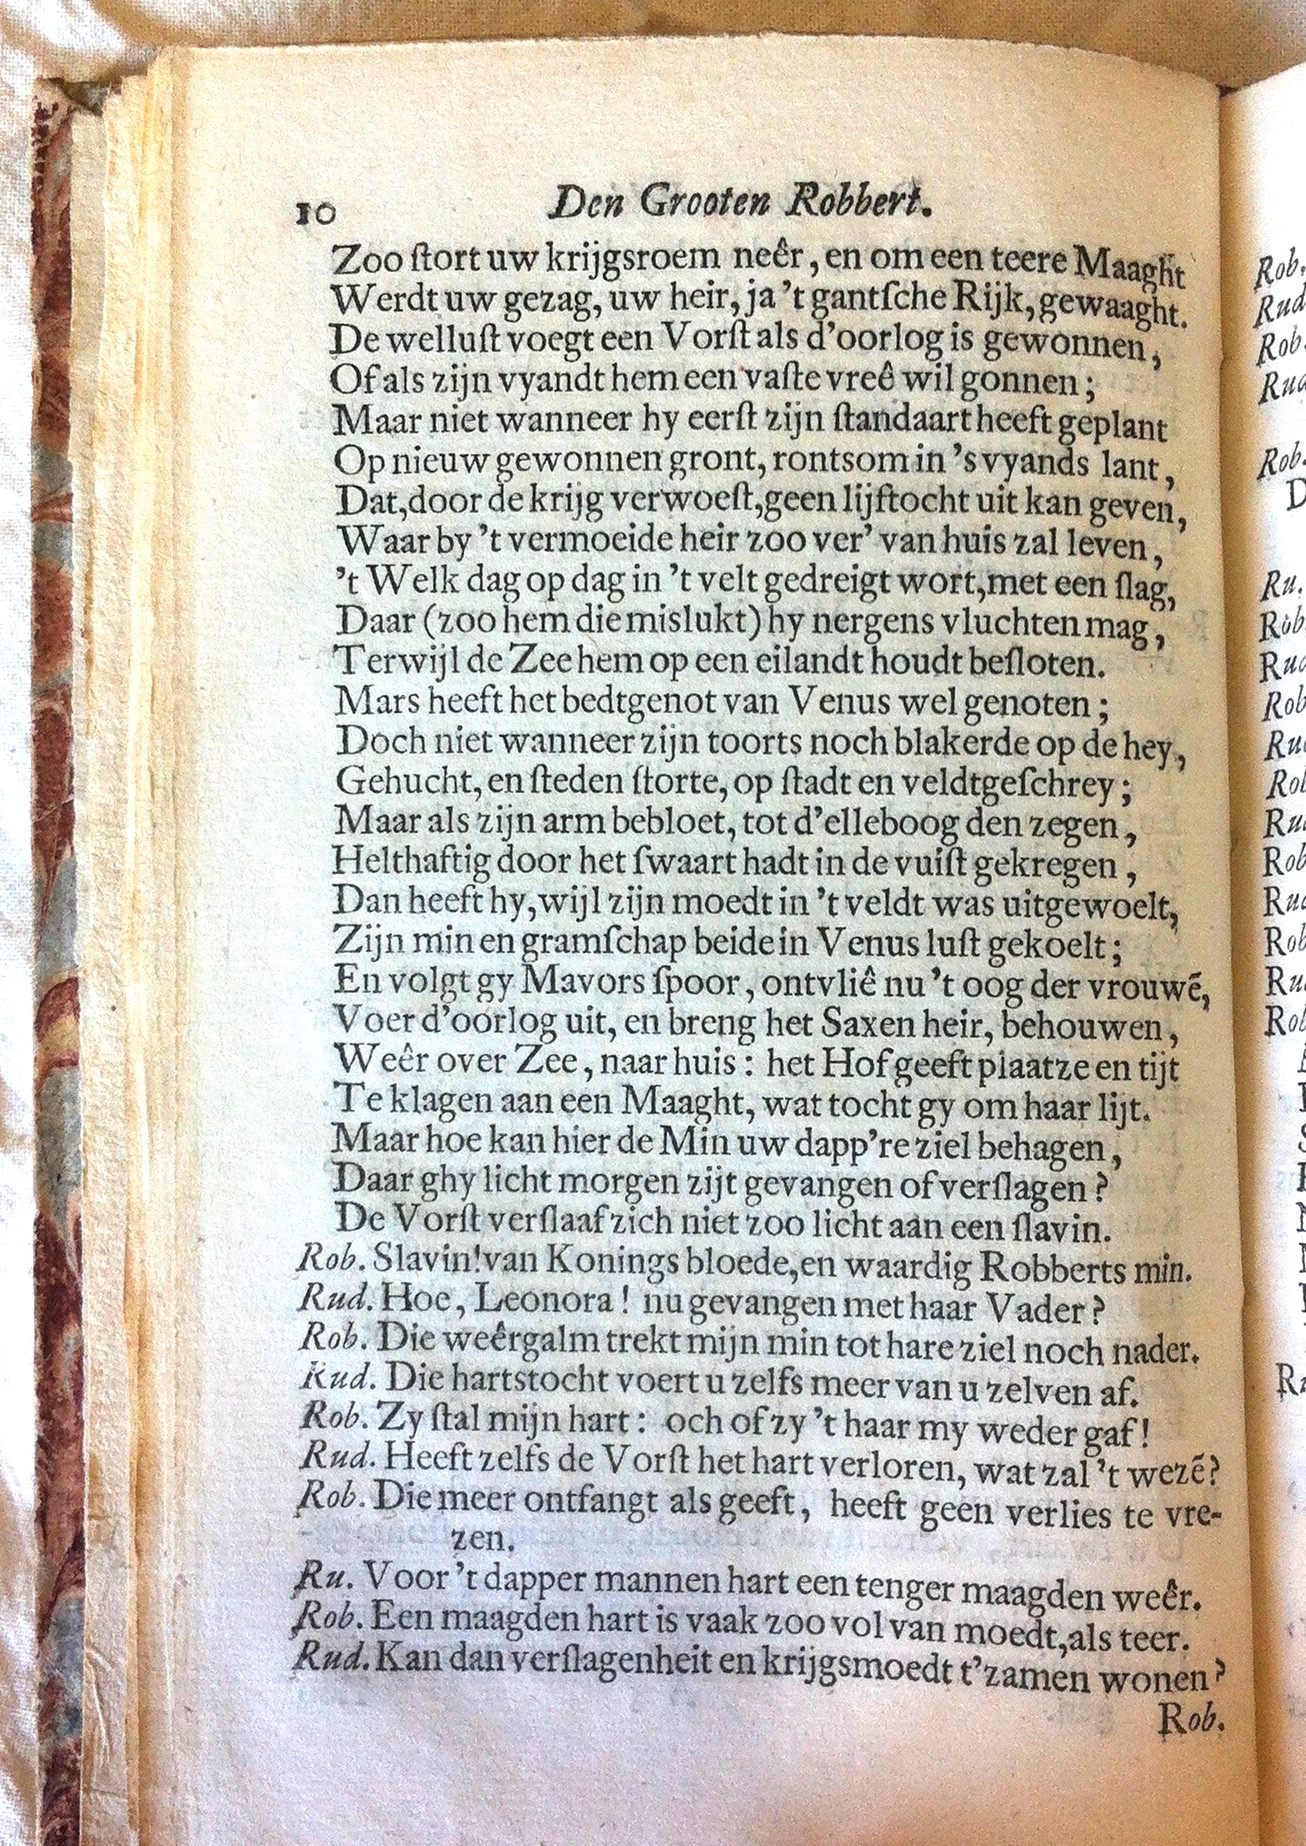 10 Den Grooten Robbert.
Zoo ſtort uw krijgsroem neêr, en om een teere Maaght
Werdt uw gezag, uw heir, ja 't gantſche Rijk, gewaaght.
De welluſt voegt een Vorſt als d'oorlog is gewonnen,
Of als zijn vyandt hem een vaſte vreê wil gonnen;
Maar niet wanneer hy eerſt zijn ſtandaart heeft geplant
Op nieuw gewonnen gront, rontsom in 's vyands lant,
Dat, door de krijg verwoeſt, geen lijftocht uit kan geven,
Waar by 't vermoeide heir zoo ver' van huis zal leven,
't Welk dag op dag in 't velt gedreigt wort, met een ſlag,
Daar (zoo hem die mislukt) hy nergens vluchten mag,
Terwijl de Zee hem op een eilandt houdt beſloten.
Mars heeft het bedtgenot van Venus wel genoten;
Doch niet wanneer zijn toorts noch blakerde op de hey,
Gehucht, en ſteden ſtorte, op ſtadt en veldtgeſchrey;
Maar als zijn arm bebloet, tot d'elleboog den zegen,
Helthaftig door het ſwaart hadt in de vuiſt gekregen,
Dan heeft hy, wijl zijn moedt in 't veldt was uitgewoelt,
Zijn min en gramſchap beide in Venus luſt gekoelt;
En volgt gy Mavors ſpoor, ontvliê nu 't oog der vrouwẽ,
Voer d'oorlog uit, en breng het Saxen heir, behouwen,
Weêr over Zee, naar huis: het Hof geeft plaatze en tijt
Te klagen aan een Maaght, wat tocht gy om haar lijt.
Maar hoe kan hier de Min uw dapp're ziel behagen,
Daar ghy licht morgen zijt gevangen of verſlagen?
De Vorſt verſlaaf zich niet zoo licht aan een ſlavin.
Rob. Slavin! van Konings bloede, en waardig Robberts min.
Rud. Hoe, Leonora! nu gevangen met haar Vader?
Rob. Die weêrgalm trekt mijn min tot hare ziel noch nader.
Rud. Die hartstocht voert u zelfs meer van u zelven af.
Rob. Zy ſtal mijn hart: och of zy 't haar my weder gaf!
Rud. Heeft zelfs de Vorſt het hart verloren, wat zal 't wezẽ?
Rob. Die meer ontfangt als geeft, heeft geen verlies te vre-
zen.
Ru. Voor 't dapper mannen hart een tenger maagden weêr.
Rob. Een maagden hart is vaak zoo vol van moedt, als teer.
Rud. Kan dan verſlagenheit en krijgsmoedt t'zamen wonen?
Rob.
Rob.
Rud
Rob.
Rud
Rob.
D
Ru.
Rob.
Rud
Rob
Ru
Rob
Ru
Rob
Rud
Rob
Ru
Rob